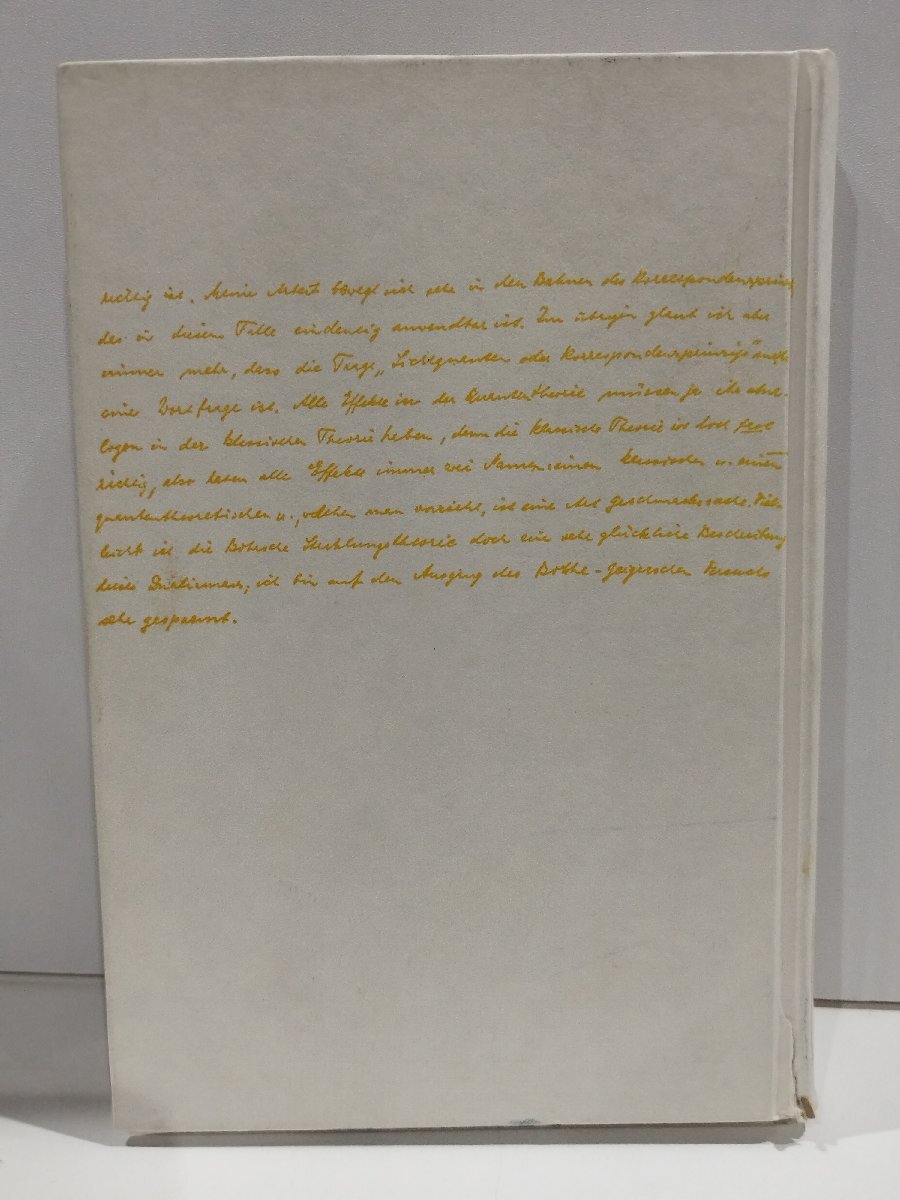 richtig ist. Meine Arbeit bewegt sich sehr in den Bahnen des Korrespondenzprinz
das in diesem Falle eindeutig anwendbar ist. Im übrigen glaub ich aber
immer mehr, dass die Frage „Lichtquanten oder Korrespondenzprinzip" mehr
eine Wortfrage ist. Alle Effekte in der Quantentheorie müssen ja ihr Ana-
logon in der klassischen Theorie haben, denn die klassische Theorie ist doch fast
richtig, also haben alle Effekte immer zwei Namen einen klassischen u. einen
quantentheoretischen u., welchen man vorzieht, ist eine Art Geschmackssache. Viel-
leicht ist die Bohrsche Strahlungstheorie doch eine sehr glückliche Beschreibung
dieses Dualismus, ich bin auf den Ausgang des Bothe-Geigerschen Versuchs
sehr gespannt.